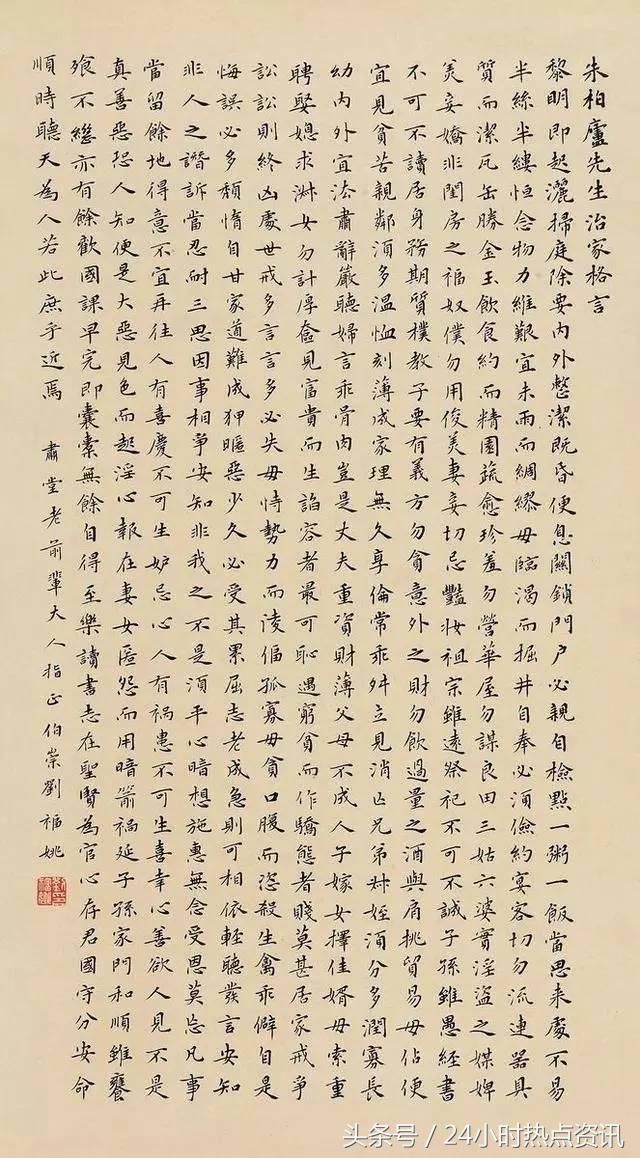 朱柏廬先生治家格言
黎明即起灑掃庭除要內外整潔既昏便息關鎖門戶必親自檢點一粥一飯當思来處不易
半絲半縷恒念物力維艱宜未雨而綢繆毋臨渴而掘井自奉必須儉約宴客切勿流連器具
質而潔瓦缶勝金玉飲食約而精園蔬愈珍羞勿營華屋勿謀良田三姑六婆實淫盜之媒婢
美妾嬌非閨房之福奴僕勿用俊美妻妾切忌豔妝祖宗雖遠祭祀不可不誠子孫雖愚經書
不可不讀居身務期質樸教子要有義方勿貪意外之財勿飲過量之酒與肩挑貿易毋佔便
宜見貧苦親鄰須多溫恤刻薄成家理無久享倫常乖舛立見消亡兄弟叔姪須分多潤寡長
幼內外宜法肅辭嚴聽婦言乖骨肉豈是丈夫重資財薄父母不成人子嫁女擇佳婿毋索重
聘娶媳求淑女勿計厚奩見富貴而生諂容者最可恥遇窮貧而作驕態者賤莫甚居家戒爭
訟訟則終凶處世戒多言言多必失毋恃勢力而淩偪孤寡毋貪口腹而恣殺生禽乖僻自是
悔誤必多頹惰自甘家道難成狎暱惡少久必受其累屈志老成急則可相依輕聽發言安知
非人之譖訴當忍耐三思因事相爭安知非我之不是須平心暗想施惠無念受恩莫忘凡事
當留餘地得意不宜再往人有喜慶不可生妒忌心人有禍患不可生喜幸心善欲人見不是
真善惡恐人知便是大惡見色而起淫心報在妻女匿怨而用暗箭禍延子孫家門和順雖饔
飱不繼亦有餘歡國課早完即囊橐無餘自得至樂讀書志在聖賢為官心存君國守分安命
順時聽天為人若此庶乎近焉 肅堂老前輩大人指正 伯崇劉福姚
头条号 / 24小时热点资讯